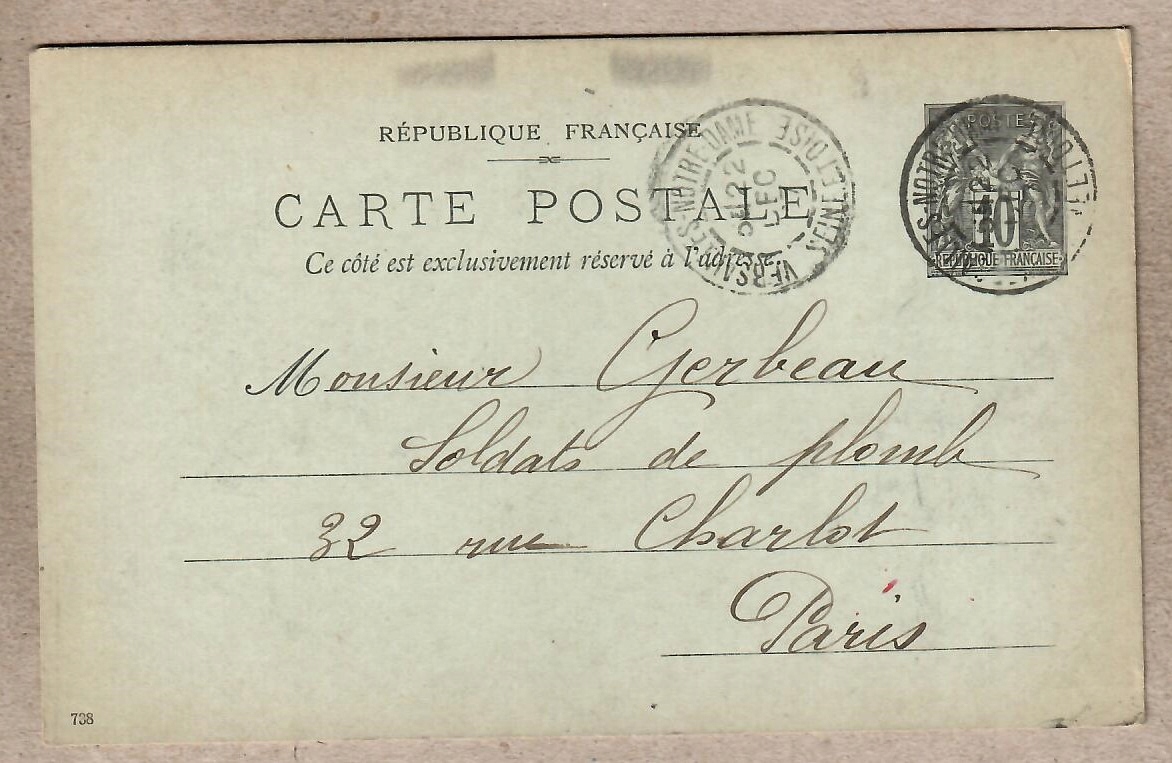 RÉPUBLIQUE FRANÇAISE
CARTE POSTALE
Ce côté est exclusivement réservé à l'adresse.
VERSAILLES-NOTRE-DAME
22
DEC
SEINE ET OISE
POSTES
10
REPUBLIQUE FRANÇAISE
Monsieur Gerbeau
Soldats de plomb
32 rue Charlot
Paris
738